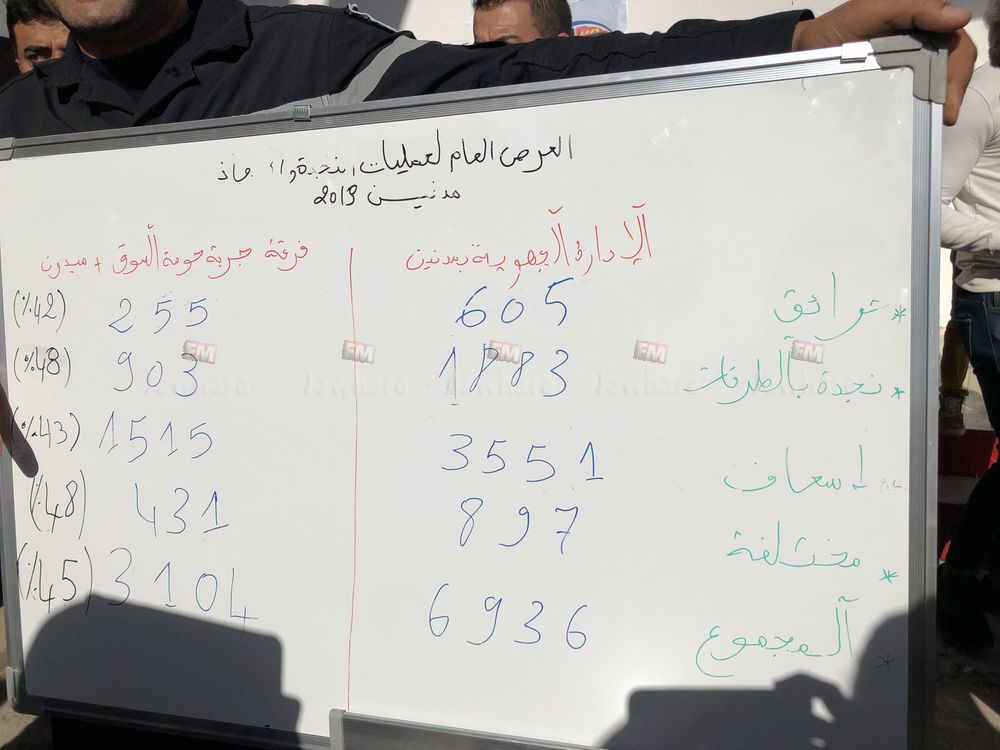 العرض العام لعمليات النجدة و
مدنين 2013
الإدارة الجهوية بمدنين فرقة جربة حومة السوق + ميدون
* حرائق 605 255 (42٪)
* نجدة بالطرقات 1883 903 (48٪)
* إسعاف 3551 1515 (43٪)
* مختلفة 897 431 (48٪)
* المجموع 6936 3104 (45٪)
FM FM FM FM FM
Jawhara Jawhara Jawhara Jawhara